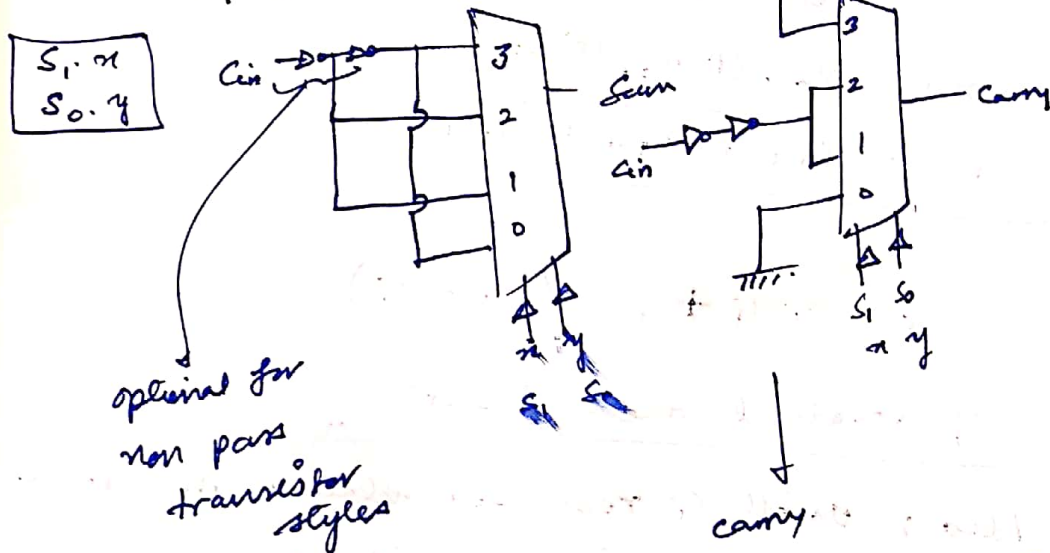 S₁. x
S₀. y
Cin
3
2
1
0
Sum
x
y
S₁
S₀
optional for
non pass
transistor
styles
Cin
3
2
1
0
Carry
S₁
S₀
x
y
carry.